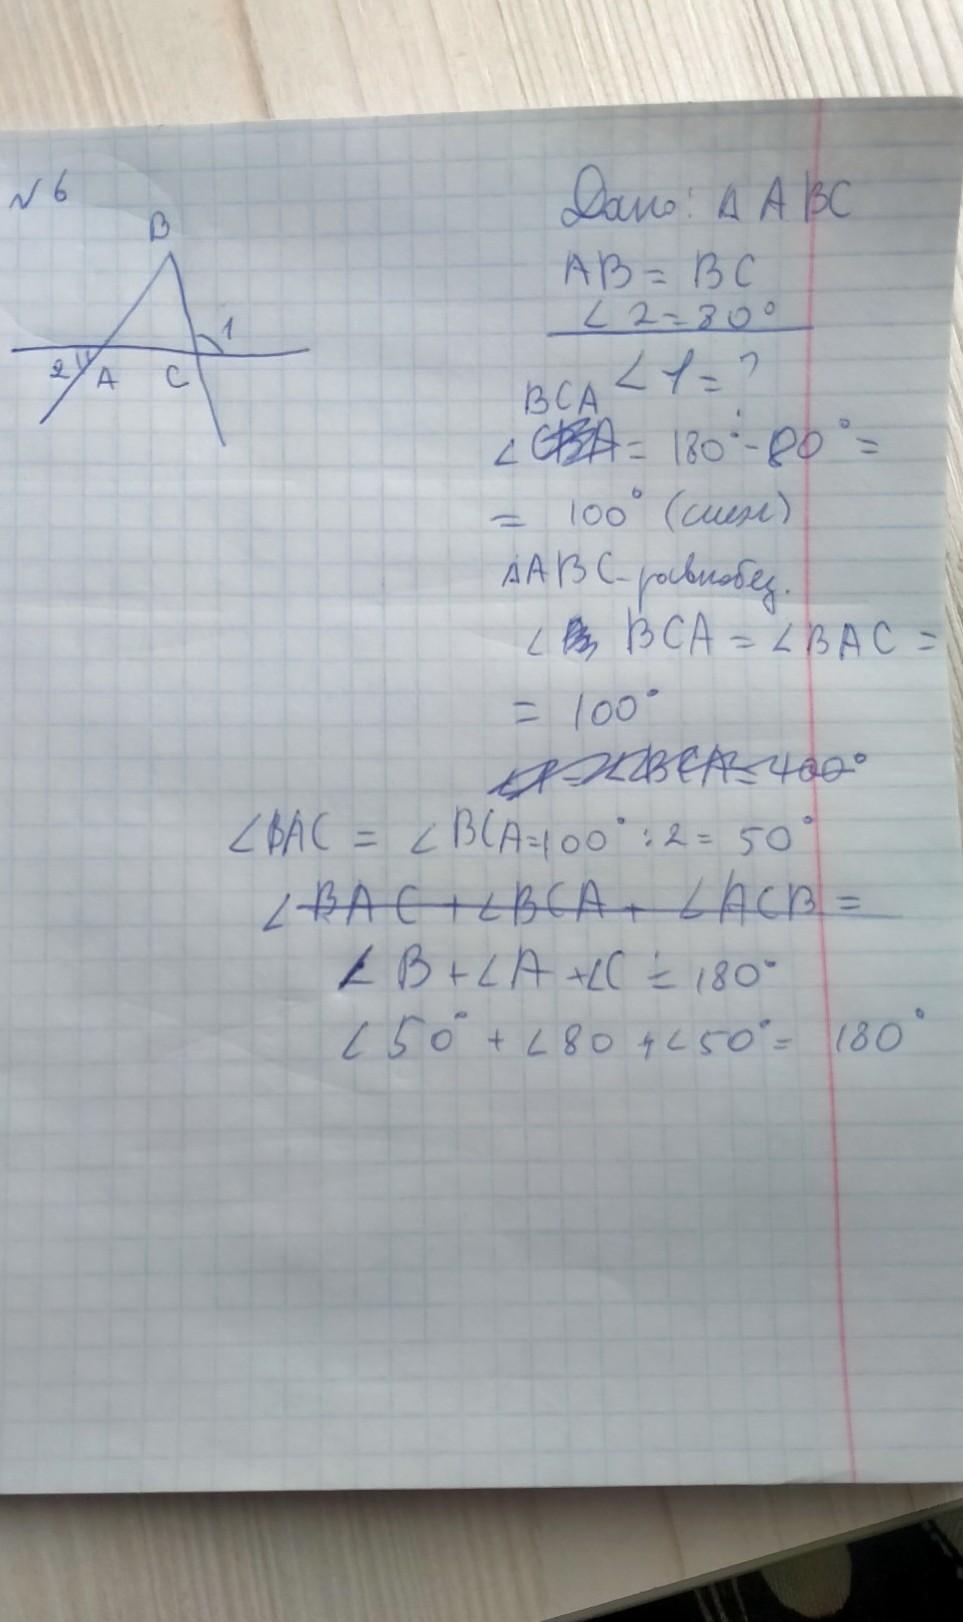 № 6
Дано: Δ ABC
B
AB = BC
∠ 2 = 80°
1
2 A C
∠ 1 = ?
BCA
∠ CBA = 180° - 80° =
= 100° (смеж)
ΔABC - равнобед.
∠ BCA = ∠BAC =
= 100°
∠BCA = 400°
∠BAC = ∠BCA=100° : 2 = 50°
∠BAC + ∠BCA + ∠ACB =
∠B + ∠A + ∠C = 180°
∠50° + ∠80 + ∠50° = 180°